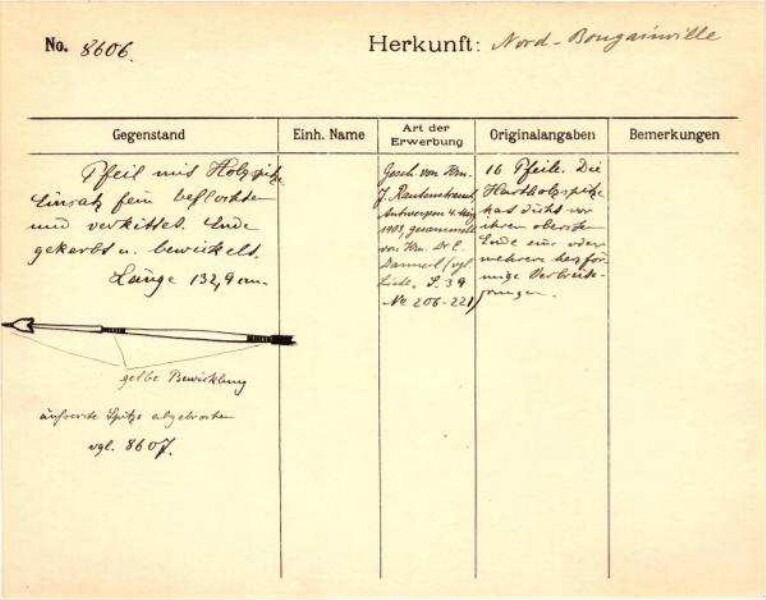 No. 8606.
Herkunft: Nord-Bougainville
Gegenstand
Einh. Name
Art der Erwerbung
Originalangaben
Bemerkungen
Pfeil mit Holzspitze
Einsatz fein beflochten
und verkittet. Ende
gekerbt u. bewickelt.
Länge 132,9 cm.
gelbe Bewicklung
äußerste Spitze abgebrochen
vgl. 8607.
Gesch. von Hrn.
J. Rautenstrauch,
Antwerpen 4. März
1903, gesammelt
von Hrn. Dr E.
(vgl.
Liste, S. 39
No 206-221)
16 Pfeile. Die
Hartholzspitze
hat dicht vor
ihrem obersten
Ende eine oder
mehrere herzför-
mige Verbrei-